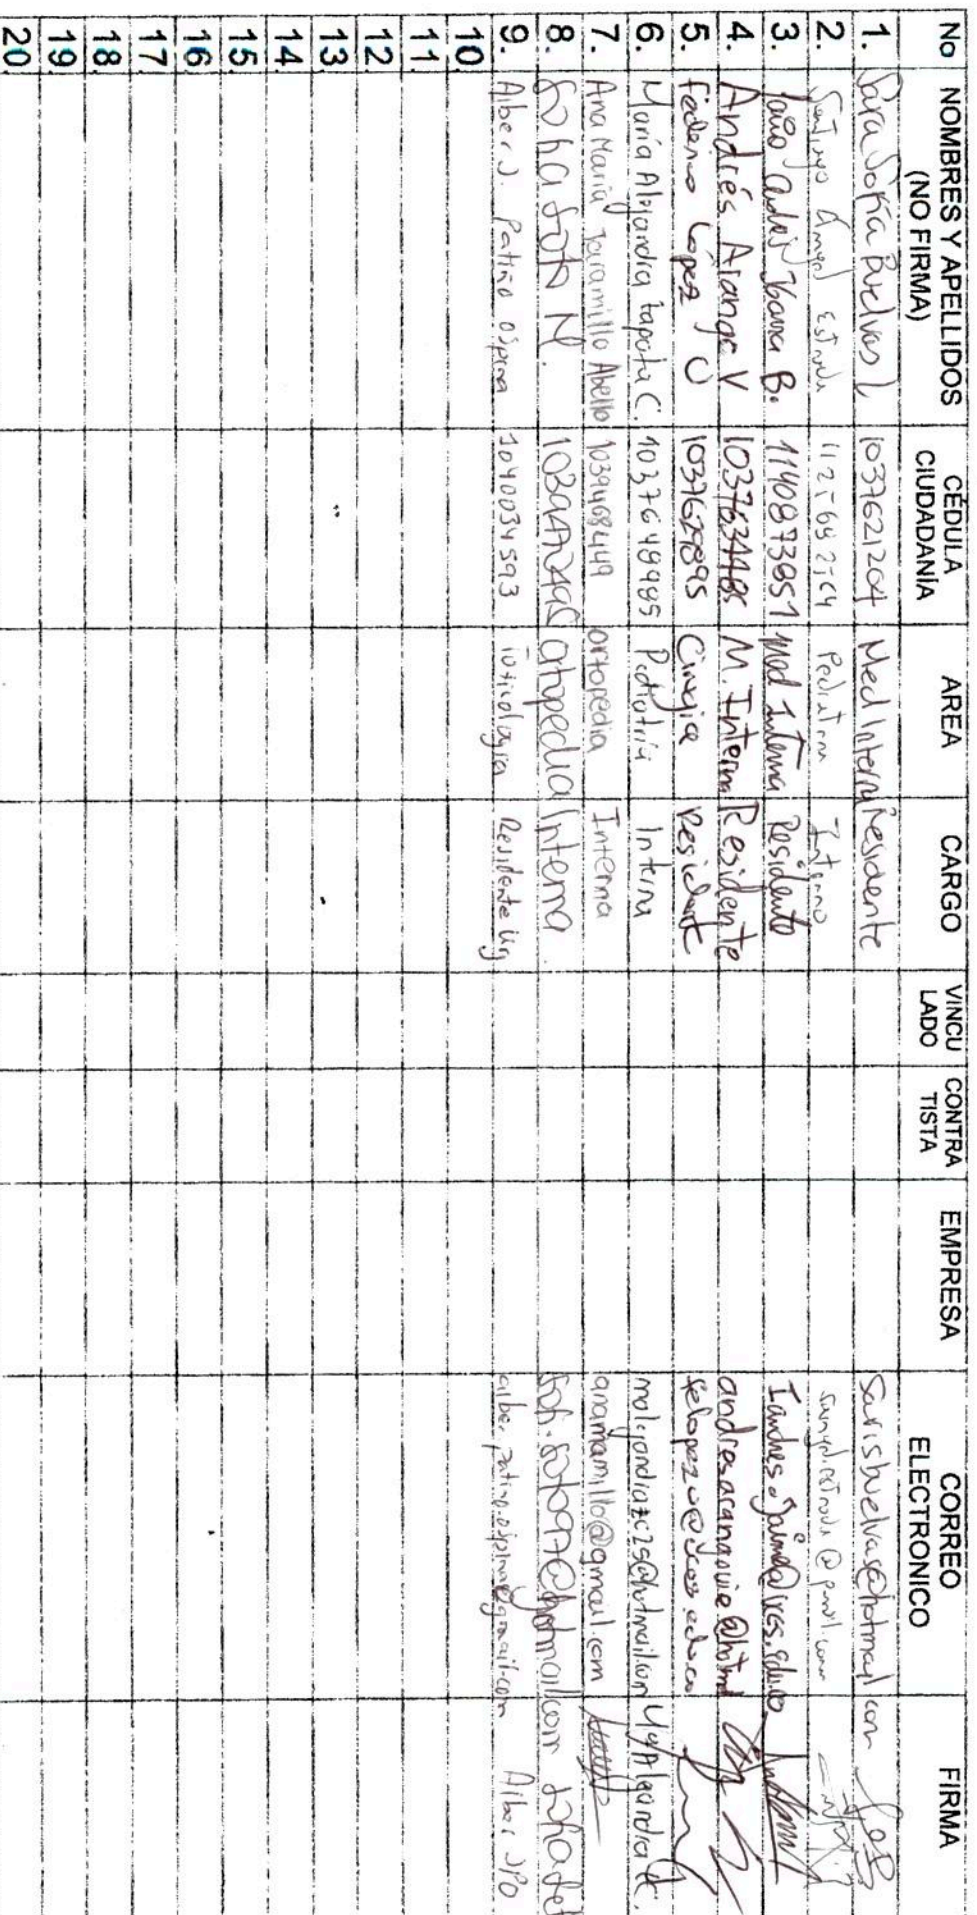 No NOMBRES Y APELLIDOS (NO FIRMA) CÉDULA CIUDADANÍA AREA CARGO VINCU LADO CONTRA TISTA EMPRESA CORREO ELECTRONICO FIRMA
1. Sara Sofía Buelvas L 1037621264 Med Interna Residente sarisbuelvas@hotmail.com
2. Santiago Angel Estrada Pediatria Interno
3. Jairo Andrés Ibarra B. 1140873851 Med Interna Residente
4. Andrés Arango V M. Interna Residente andresarangovie@hotmail
5. Federico López U 1037629895 Cirugía Residente
6. María Alejandra Zapata C. 1037648985 Pediatría Interna
7. Ana María Jaramillo Abello 1039468449 ortopedia Interna anamamillo@gmail.com
8. Sofia Soto N. ortopedia Interna sofi.soto97@hotmail.com
9. Alber J. Patiño Ospina 1040034593 Toxicología Residente Urg alber.patino.ospina@gmail.com Alber JPO
10.
11.
12
13.
14
15.
16.
17.
18.
19.
20.